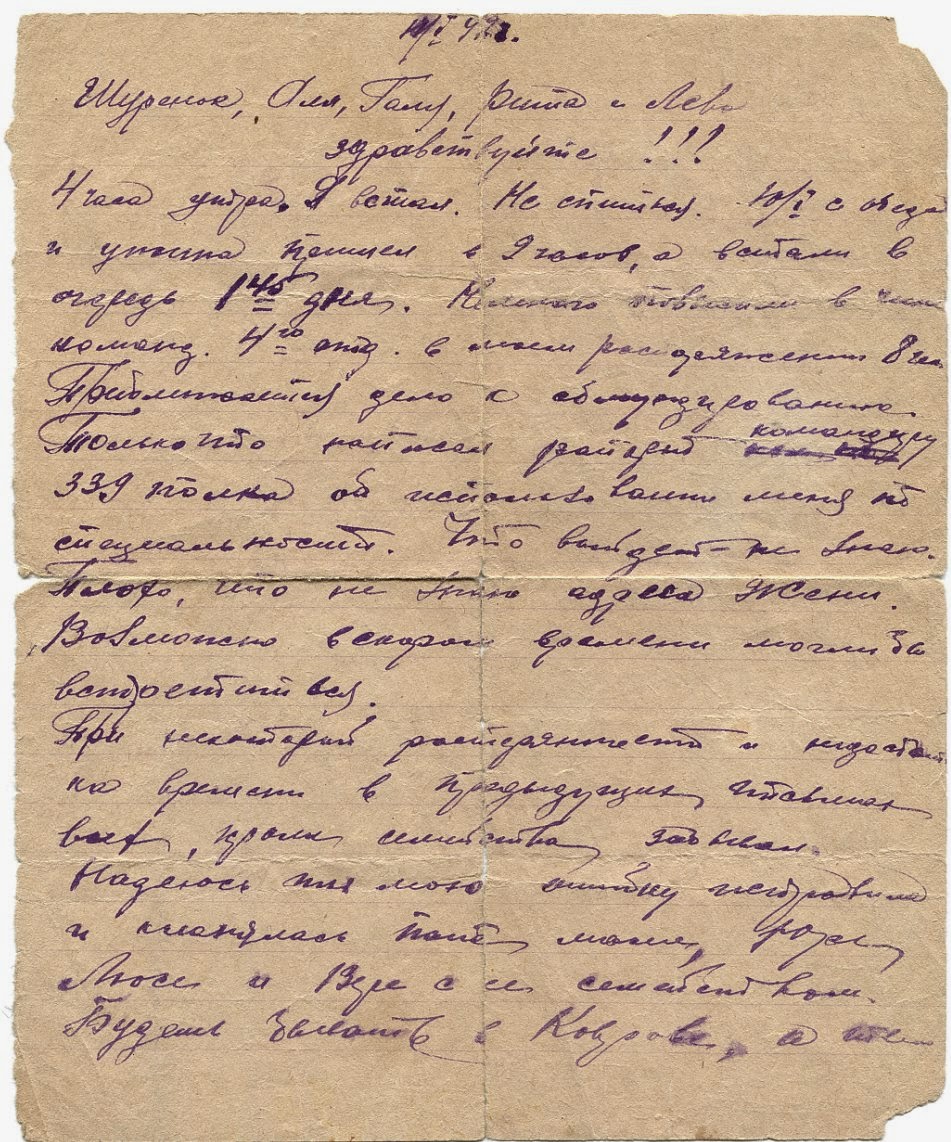 11/I 42г.
Шуренок, Оля, Галя, Рита и Лева
здравствуйте !!!
4 часа утра. Я встал. Не спиться. 10/I с обеда
и ужина пришел в 9 часов, а встали в
очередь 1 45 дня. Немного повысили в чине
команд. 4го отд. в моем распоряжении 8 чел.
Приближается дело к обмундированию.
Только что написал рапорт командиру
339 полка об использовании меня по
специальности. Что выйдет - не знаю.
Плохо, что не знаю адреса Жени.
Возможно в скором времени могли бы
встретиться.
При некоторой растерянности и недостат
ка времени в предыдущих письмах
всех, кроме семейства забывал.
Надеюсь ты мою ошибку исправила
и кланялась папе, маме,
Люсе и Вере с ее семейством.
Будешь бывать в Коврове, а